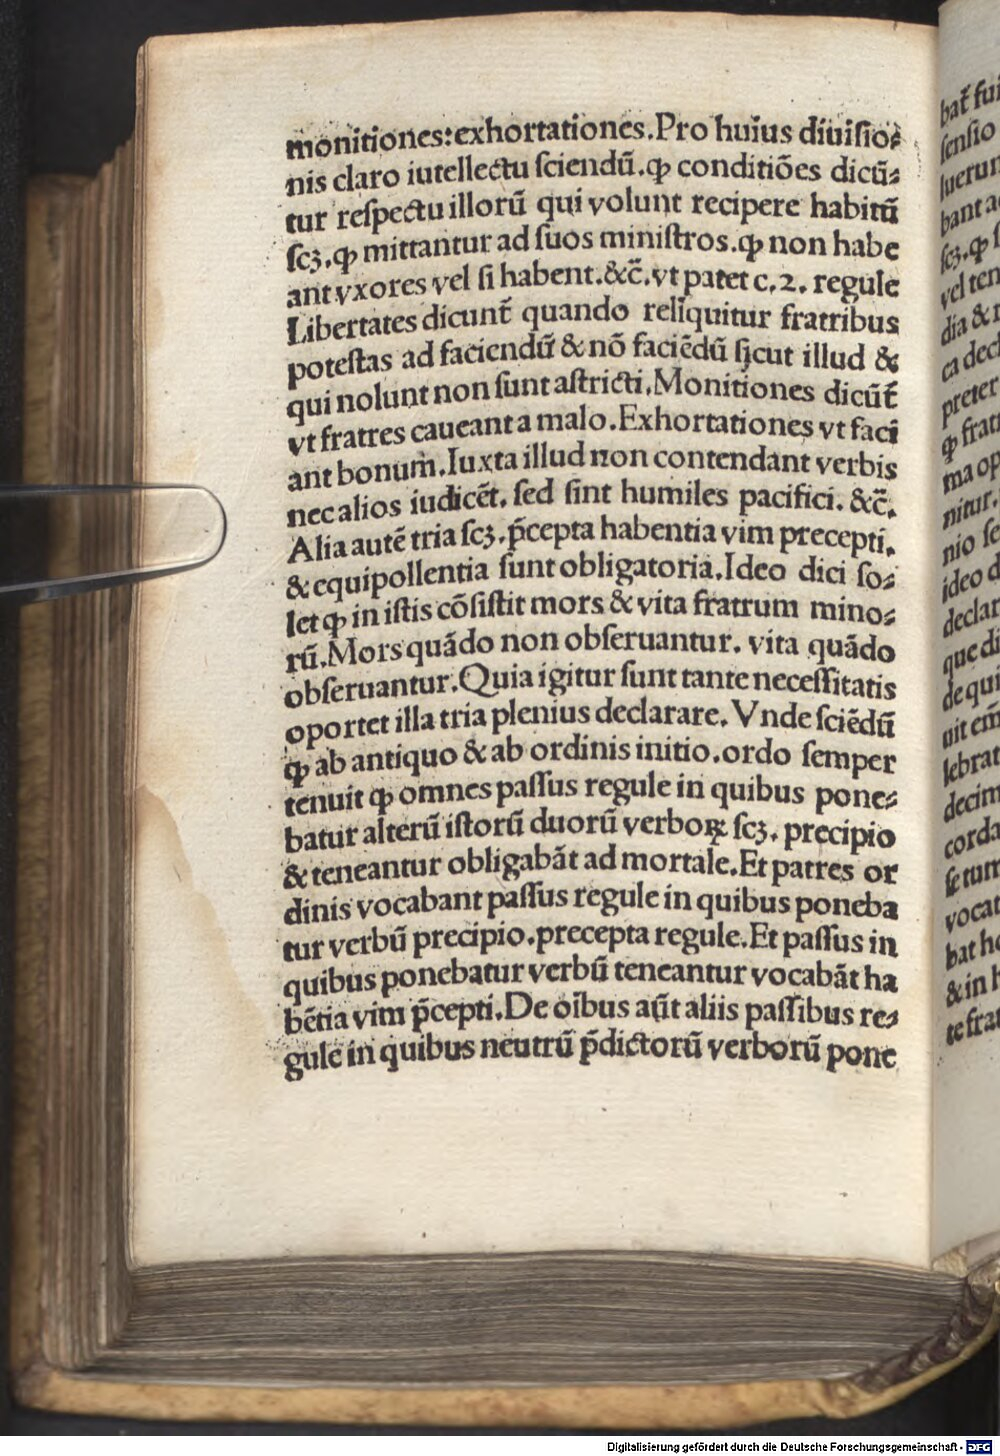 monitiones:exhortationes.Pro huius diuisio⸗
nis claro iutellectu ſciendū.ꝙ conditiões dicū⸗
tur reſpectu illorū qui volunt recipere habitū
ſcꝫ.ꝙ mittantur ad ſuos miniſtros.ꝙ non habe
ant vxores vel ſi habent.&c̃.vt patet c.2. regule
Libertates dicunt̃ quando relīquitur fratribus
poteſtas ad faciendū & nõ faciẽdū ſicut illud &
qui nolunt non ſunt aſtricti.Monitiones dicūt̃
vt fratres caueant a malo.Exhortationes vt faci
ant bonum.Iuxta illud non contendant verbis
nec alios iudicẽt. ſed ſint humiles pacifici. &c̃.
Alia autẽ tria ſcꝫ.p̃cepta habentia vim precepti.
& equipollentia ſunt obligatoria.Ideo dici ſo⸗
let ꝙ in iſtis cõſiſtit mors & vita fratrum mino⸗
rū.Mors quãdo non obſeruantur. vita quãdo
obſeruantur.Quia igitur ſunt tante neceſſitatis
oportet illa tria plenius declarare. Vnde ſciẽdū
ꝙ ab antiquo & ab ordinis initio.ordo ſemper
tenuit ꝙ omnes paſſus regule in quibus pone⸗
batur alterū iſtorū duorū verboꝝ ſcꝫ. precipio
& teneantur obligabãt ad mortale.Et patres or
dinis vocabant paſſus regule in quibus poneba
tur verbū precipio.precepta regule.Et paſſus in
quibus ponebatur verbū teneantur vocabãt ha
bẽtia vim p̃cepti.De oībus aūt aliis paſſibus re⸗
gule in quibus neutrū p̃dictorū verborū pone
bat̃ fui
ſenſio
luerun
bant a
ſcꝫ.ꝙ ſ
vel ten
dia & r
ca decl
preter
ꝙ frat
ma op
nitur.
nio ſe
ideo d
declar
que di
de qui
uit em̃
lebrat
decim
corda
ſe tum
vocat
bat ho
& in h
te frat
Digitalisierung gefördert durch die Deutsche Forschungsgemeinschaft - DFG